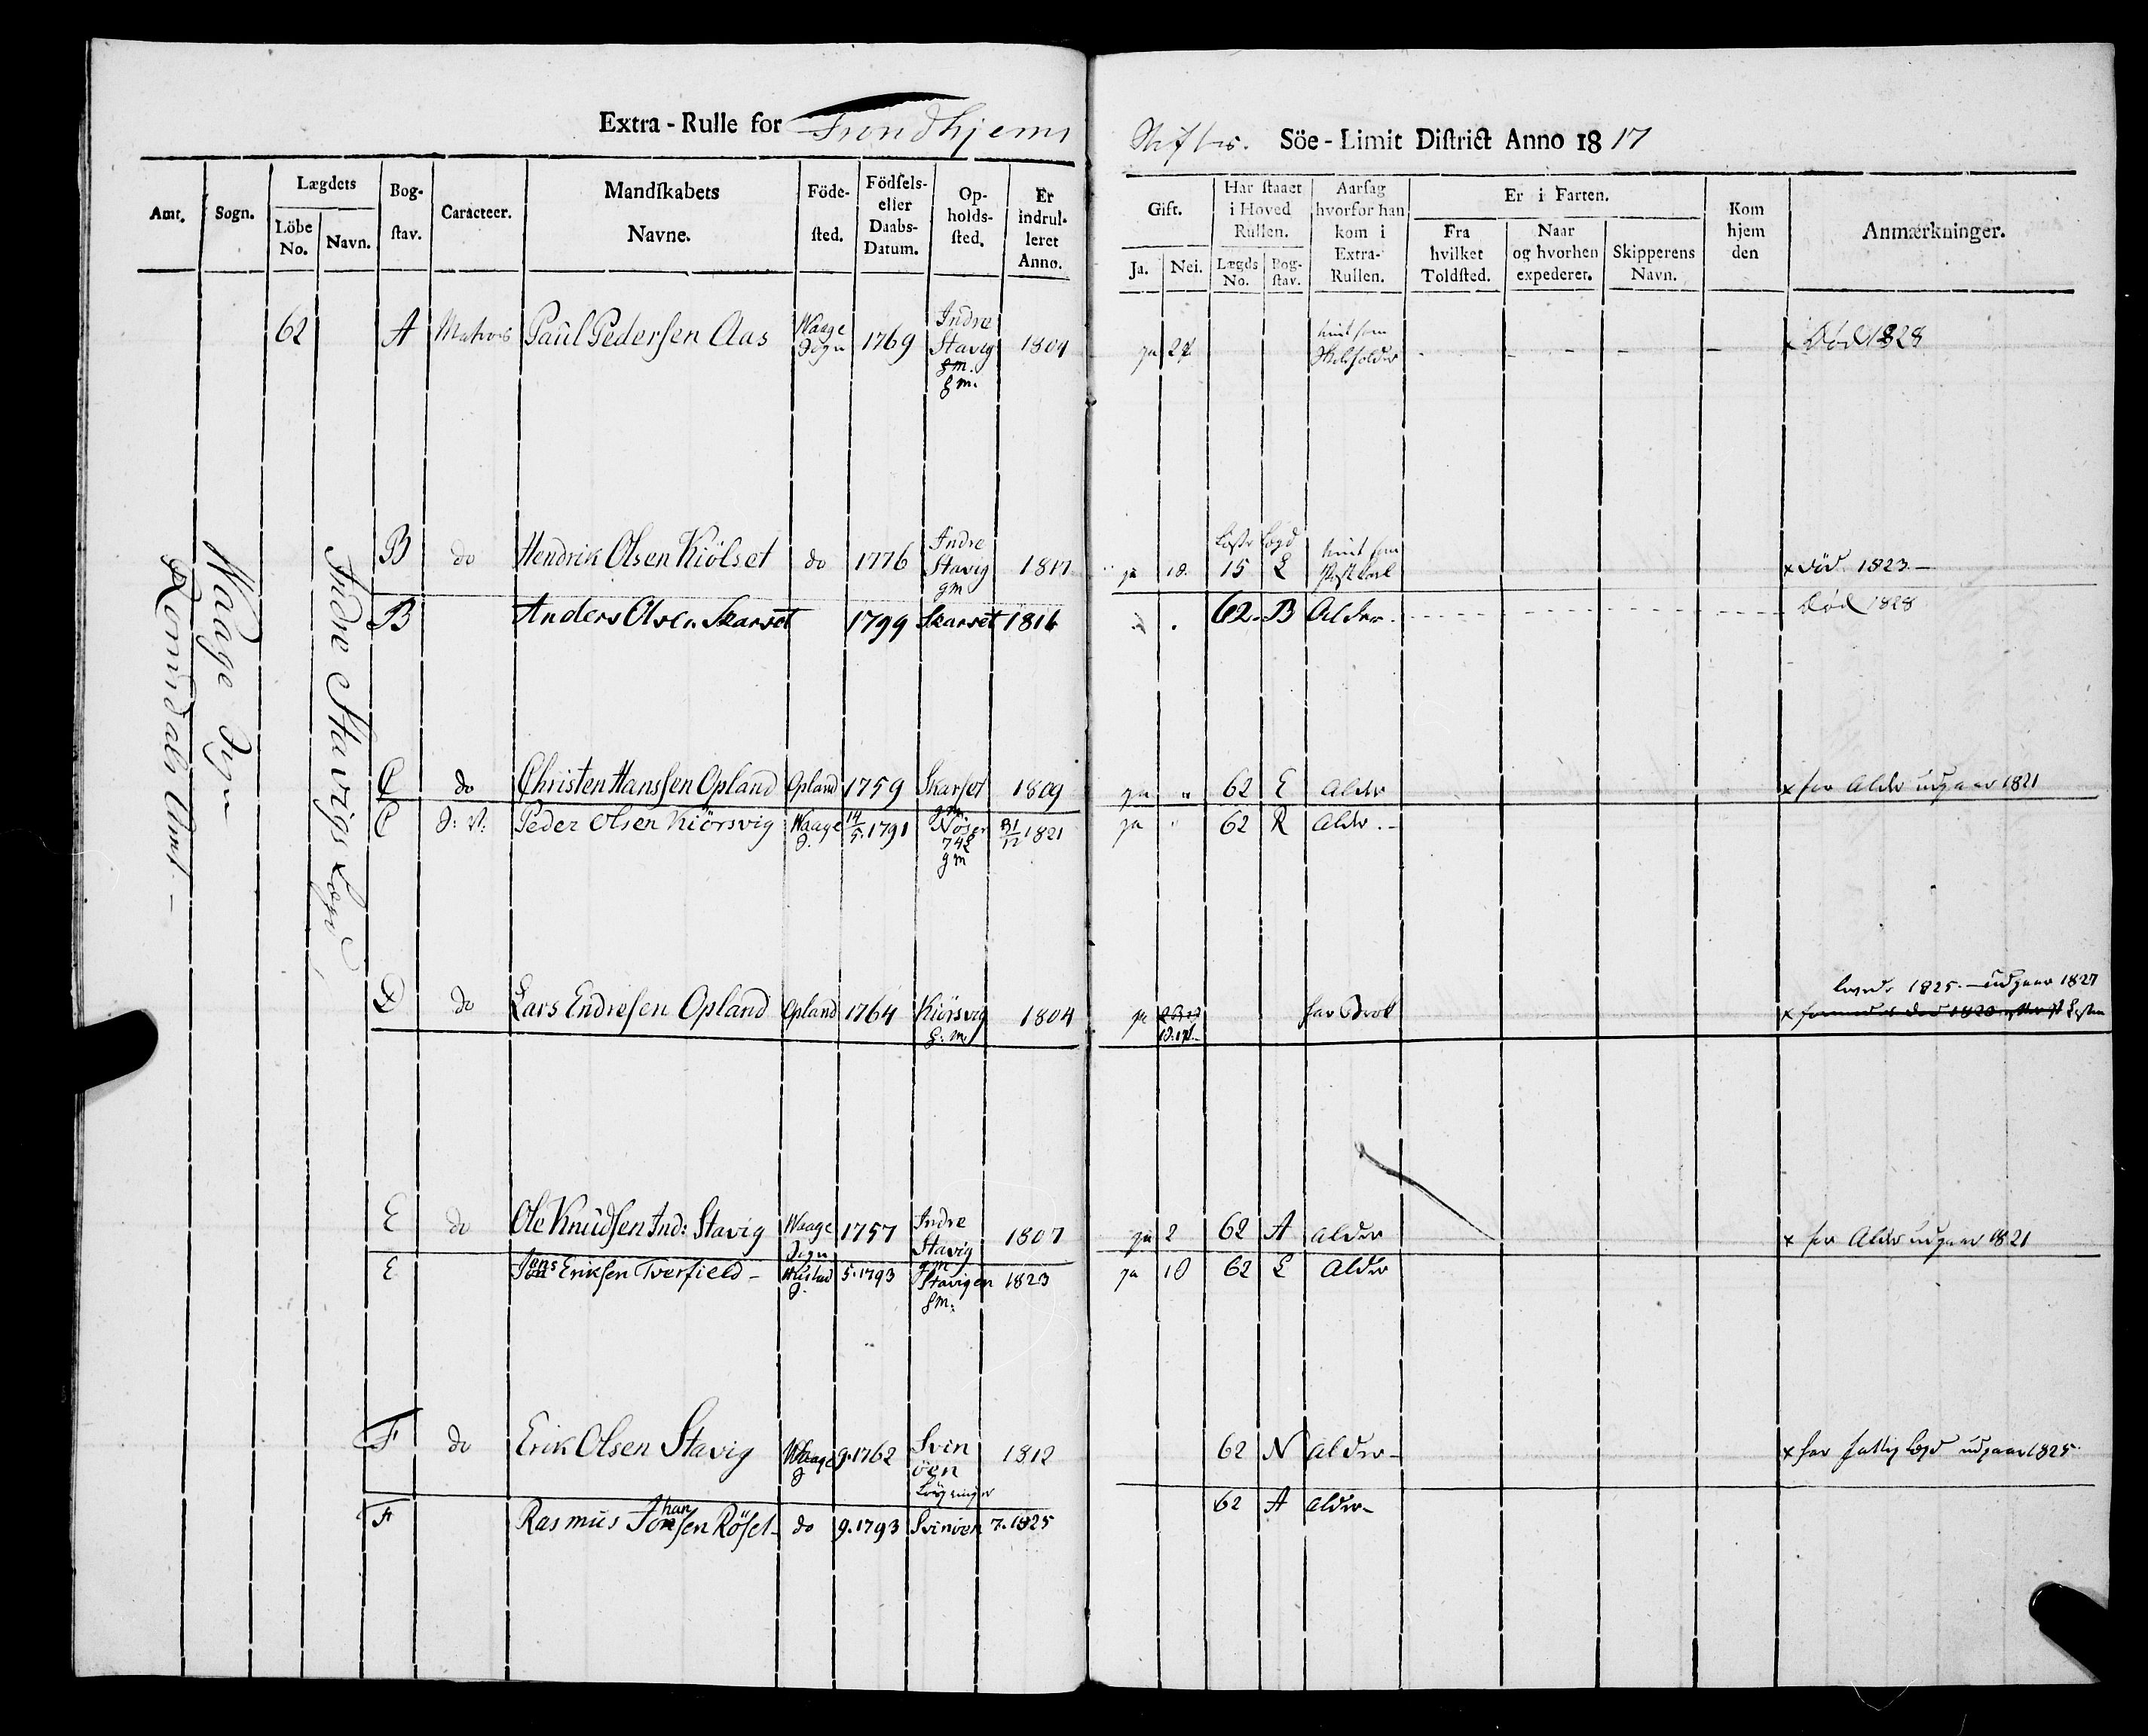 Extra-Rulle for Trondhjems Stifts. Söe-Limit District Anno 1817
Amt. Sogn. Lægdets Bog-stav. Caracteer. Mandskabets Navne. Föde-sted. Födsels-eller Daabs-Datum. Op-holds-sted. Er indrul-leret Anno. Gift. Har staaet i Hoved Rullen. Aarsag hvorfor han kom i Extra-Rullen. Er i Farten. Kom hjem den Anmærkninger.
Löbe No. Navn. Ja. Nei. Lægds No. Bog-stav. Fra hvilket Toldsted. Naar og hvorhen expederet. Skipperens Navn.
Romsdals Amt –
Waage Sogn
Indre Stavigs Lægd
62 A Matros Paul Pedersen Aas Waage Sogn 1769 Indre Stavig gm. gm. 1804 ja 2 x Död 1828
B do Hendrik Olsen Kiölset do 1776 Indre Stavig gm 1817 ja 18. 15 L x död 1823 –
B Anders Olsen Skarset 1799 Skarset 1816 62. B Alder. Död 1828
C do Christen Hanssen Opland Opland 1759 Skarset gm. 1809 ja " 62 E Alder x for Alder udgaar 1821
C S: V: Peder Olsen Kiörsvig Waage S. 14/5. 1791 gm 31/12 1821 ja " 62 R Alder. –
D do Lars Endresen Opland Opland 1764 Kiörsvig g: m. 1804 ja for Brok 1825. – udgaar 1827
E do Ole Knudsen Ind: Stavig Waage Sogn 1757 Indre Stavig gm 1807 ja 2 62 A alder x for Alder udgaar 1821
E Jens Eriksen Tverfield – Hustad S. 5. 1793 Stavigen gm. 1823 ja 10 62 L Alder
F do Erik Olsen Stavig Waage S 9. 1762 Svinöen 1812 62 N alder – x for fattig udgaar 1825.
F Rasmus Johansen Röset – do 9. 1793 Svinöen 7. 1825 62 A alder –